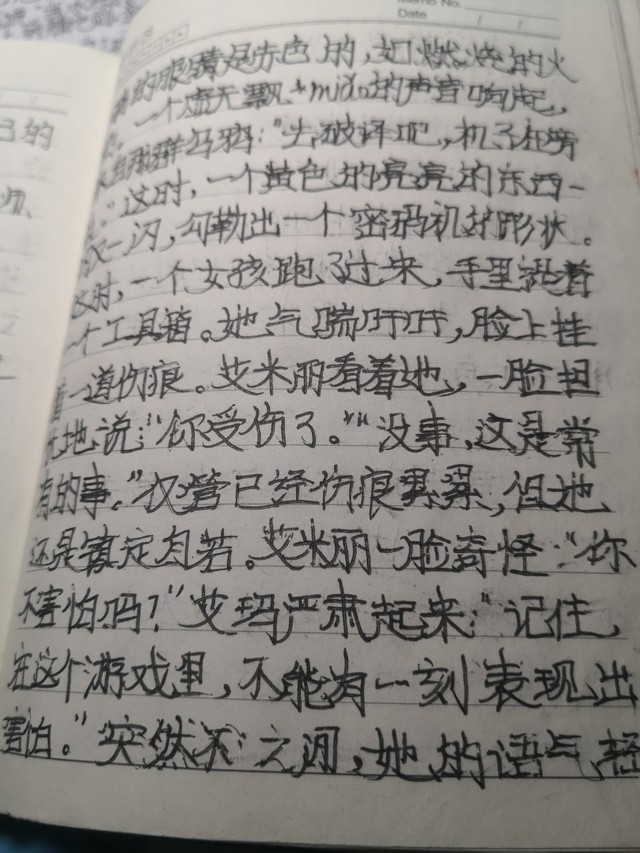 Memo No.
Date / /
己的
的眼睛是赤色的,如燃烧的火
一个虚无飘 的声音响起,
鸦:"去破译吧,机 
"这时,一个黄色的亮亮的东西一
一闪,勾勒出一个密码机的形状。
这时,一个女孩跑了过来,手里提着
一个工具箱。她气喘吁吁,脸上挂
着一道伤痕。艾米丽看着她,一脸担
地说:"你受伤了。""没事,这是常
有的事。"尽管已经伤痕累累,但她
还是镇定自若。艾米丽一脸奇怪:"你
不害怕吗?"艾玛严肃起来:"记住,
在这个游戏里,不能有一刻表现出
害怕。"突然 之间,她的语气轻